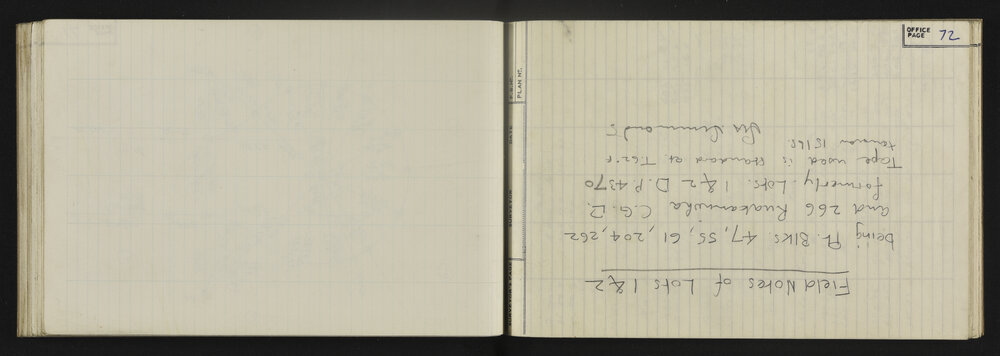 OFFICE PAGE 72
PLAN NO.
Field Notes of Lots 1 & 2
being Pt. Blks. 47, 55, 61, 204, 262
and 266 Ruakawhia C.G.D.
formerly Lots. 1 & 2 D.P. 4370
Tape used is standard at T.62°F
tension 15 lbs.